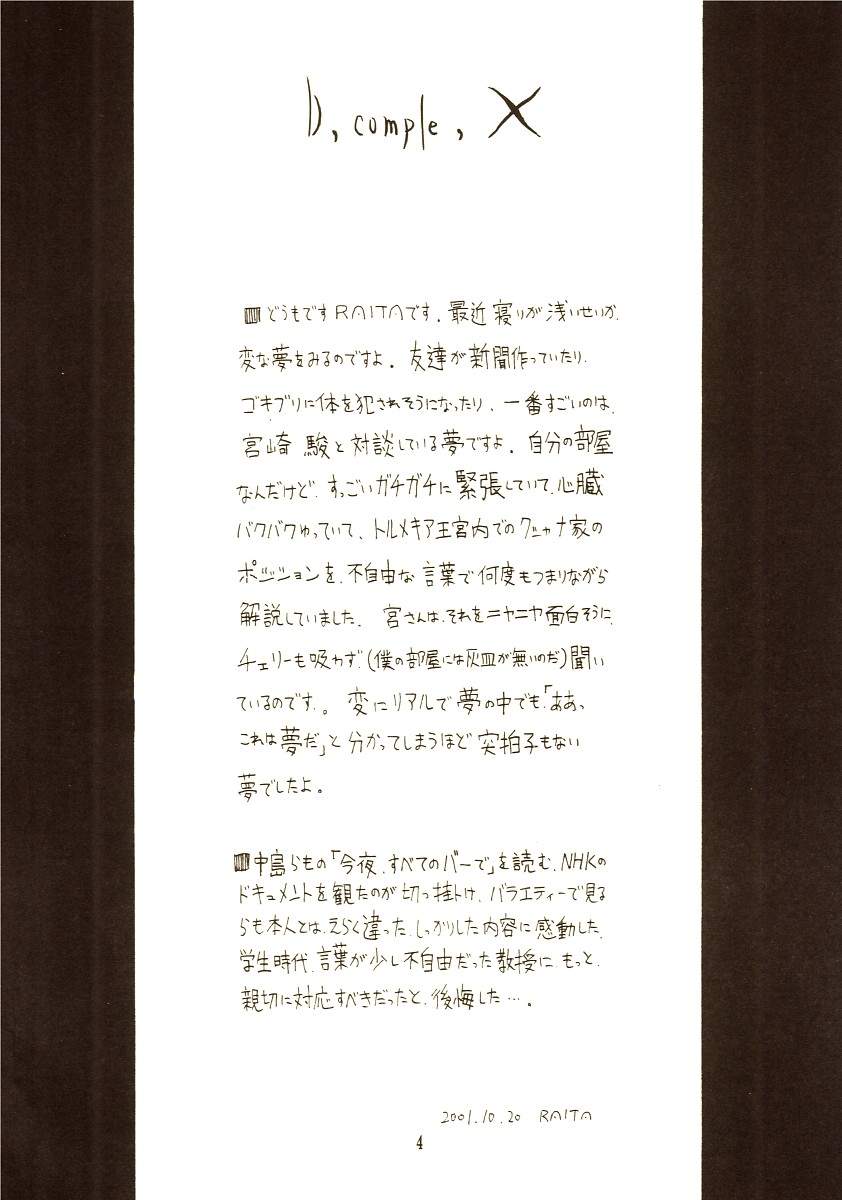 D, comple, X
どうもですRAITAです. 最近寝りが浅いせいか.
変な夢をみるのですよ. 友達が新聞作っていたり.
ゴキブリに体を犯されそうになったり、一番すごいのは、
宮崎 駿と対談している夢ですよ. 自分の部屋
なんだけど、すっごいガチガチに緊張していて、心臓
バクバクゆっていて、トルメキア王宮内でのクシャナ家の
ポジションを、不自由な言葉で何度もつまりながら
解説していました. 宮さんは、それをニヤニヤ面白そうに、
チェリーも吸わず、(僕の部屋には灰皿が無いのだ)聞い
ているのです.。変にリアルで夢の中でも、「ああ、
これは夢だ」と分かってしまうほど突拍子もない
夢でしたよ。
中島らもの「今夜、すべてのバーで」を読む、NHKの
ドキュメントを観たのが切っ掛け、バラエティーで見る
らも本人とは、えらく違った、しっかりした内容に感動した.
学生時代、言葉が少し不自由だった教授に、もっと、
親切に対応すべきだったと、後悔した…。
2001.10.20 RAITA
4